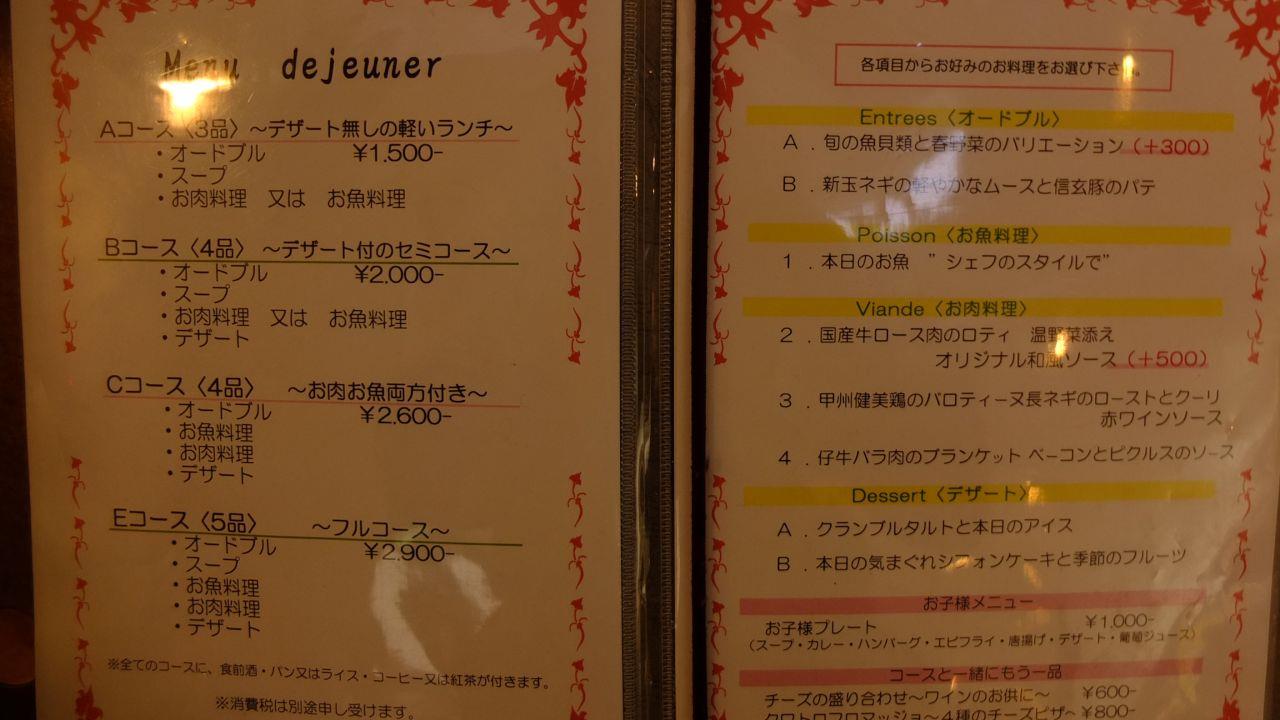 Menu dejeuner
Aコース〈3品〉～デザート無しの軽いランチ～
・オードブル ¥1,500-
・スープ
・お肉料理 又は お魚料理
Bコース〈4品〉～デザート付のセミコース～
・オードブル ¥2,000-
・スープ
・お肉料理 又は お魚料理
・デザート
Cコース〈4品〉 ～お肉お魚両方付き～
・オードブル ¥2,600-
・お魚料理
・お肉料理
・デザート
Eコース〈5品〉 ～フルコース～
・オードブル ¥2,900-
・スープ
・お魚料理
・お肉料理
・デザート
※全てのコースに、食前酒・パン又はライス・コーヒー又は紅茶が付きます。
※消費税は別途申し受けます。
各項目からお好みのお料理をお選び下さい。
Entrees〈オードブル〉
A．旬の魚貝類と春野菜のバリエーション（＋300）
B．新玉ネギの軽やかなムースと信玄豚のパテ
Poisson〈お魚料理〉
1．本日のお魚 ”シェフのスタイルで”
Viande〈お肉料理〉
2．国産牛ロース肉のロティ 温野菜添え
オリジナル和風ソース（＋500）
3．甲州健美鶏のバロティーヌ長ネギのローストとクーリ
赤ワインソース
4．仔牛バラ肉のブランケット ベーコンとピクルスのソース
Dessert〈デザート〉
A．クランブルタルトと本日のアイス
B．本日の気まぐれシフォンケーキと季節のフルーツ
お子様メニュー
お子様プレート ¥1,000-
（スープ・カレー・ハンバーグ・エビフライ・唐揚げ・デザート・葡萄ジュース）
コースと一緒にもう一品
チーズの盛り合わせ～ワインのお供に～ ¥600-
クワトロフロマッジョ～4種のチーズピザ～ ¥800-